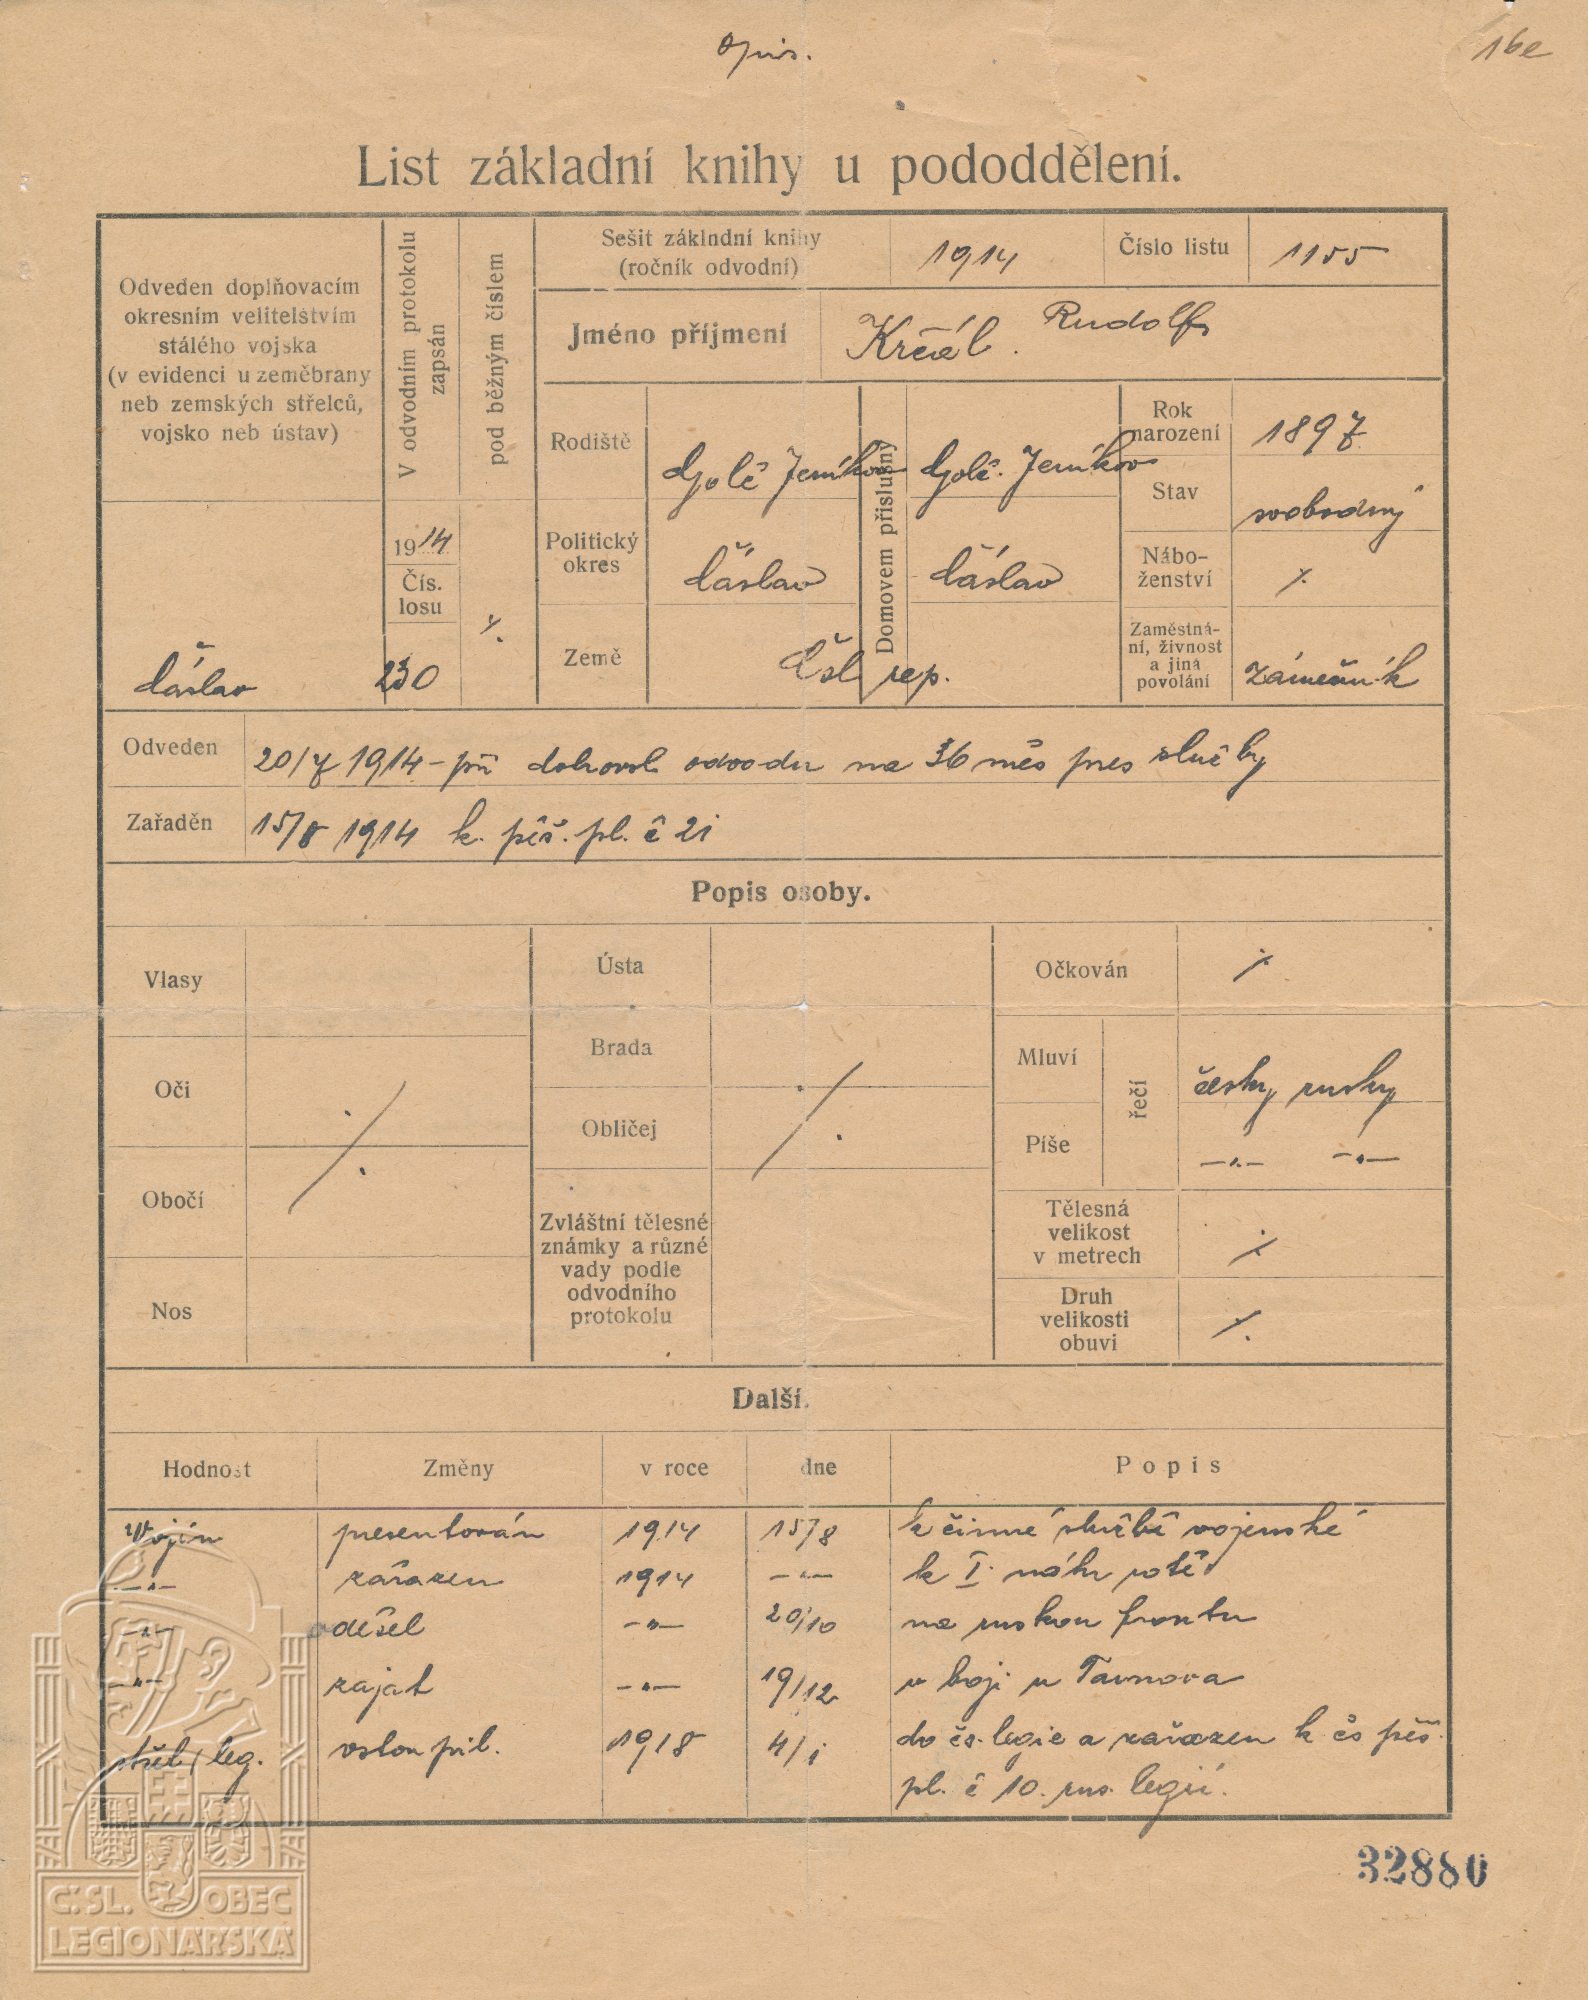 Opis.
16e
List základní knihy u pododdělení.
Odveden doplňovacím
okresním velitelstvím
stálého vojska
(v evidenci u zeměbrany
neb zemských střelců,
vojsko neb ústav)
V odvodním protokolu
zapsán
pod běžným číslem
Sešit základní knihy
(ročník odvodní)
1914
Číslo listu
1155
Jméno příjmení
Rudolf
Rodiště
Golč Jeníkov
Domovem příslušný
Golč. Jeníkov
Rok
narození
1897
Stav
svobodný
1914
Čís.
losu
230
Čáslav
Politický
okres
Čáslav
Čáslav
Nábo-
ženství
Země
Čsl. rep.
Zaměstná-
ní, živnost
a jiná
povolání
zámečník
Odveden
20/7 1914 - při dobrovol odvodu na 36 měs pres služby
Zařaděn
15/8 1914 k. pěš. pl. č 21
Popis osoby.
Vlasy
Oči
Obočí
Nos
Ústa
Brada
Obličej
Zvláštní tělesné
známky a různé
vady podle
odvodního
protokolu
Očkován
Mluví
Píše
řečí
česky rusky
-"- -"-
Tělesná
velikost
v metrech
Druh
velikosti
obuvi
Další.
Hodnost Změny v roce dne Popis
Vojín presentován 1914 15/8 k činné službě vojenské
-"- zařazen 1914 -"- k I. náhr rotě
-"- odešel -"- 20/10 na ruskou frontu
-"- zajat -"- 19/12 v boji u Tarnova
střel. leg. vstoupil. 1918 4/1 do čs. legie a zařazen k čs pěš.
pl. č 10. rus. legií.
32880
Č.SL. OBEC
LEGIONÁŘSKÁ